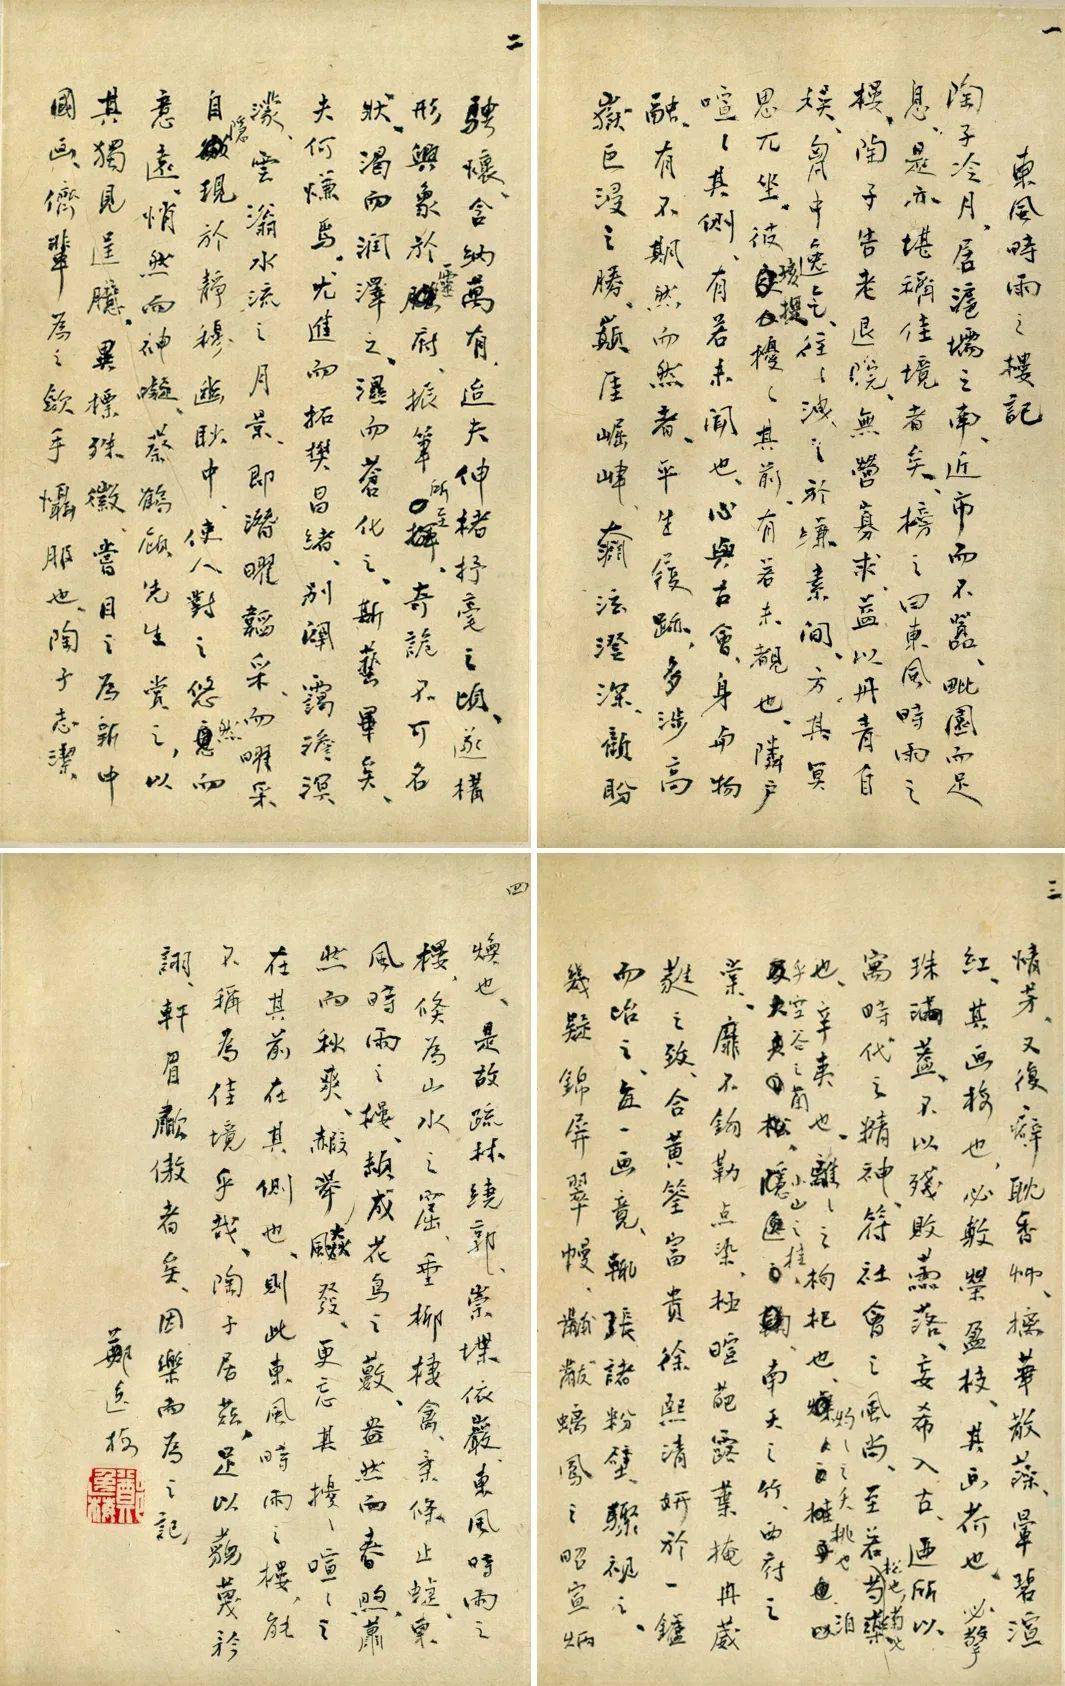 一
東風時雨之樓記
陶子冷月、居滬壖之南、近市而不囂、毗園而足
息、是亦堪稱佳境者矣、榜之曰東風時雨之
樓、陶子告老退院、無營寡求、益以丹青自
娛、胸中逸氣、往々洩之於縑素間、方其冥
思兀坐、彼孩提擾々其前、有若未覩也、隣戶
喧々其側、有若未聞也、心與古會、身與物
融、有不期然而然者、平生履跡、多涉高
嶽巨浸之勝、巔厓崛峍、泓澄深、
二
騁懷、含納萬有、迨夫伸楮抒毫之頃、遂構
形興象於靈府、振筆所至、奇詭不可名
狀、渴而潤澤之、濕而蒼化之、斯藝畢矣、
夫何慊焉、尤進而拓樊昌緒、別闢靄澹溟
濛、雲滃水流之月景、即潛曜韜采、而曜采
自隱現於靜穆幽眇中、使人對之悠然而
意遠、悄然而神凝、蔡鶴頎先生賞之、以
其獨見逞臆、異標殊徽、嘗目之為新中
國畫、儕輩為之斂手懾服也、陶子志潔
三
情芳、又復癖耽香艸、摛華散藻、暈碧渲
紅、其画梅也、必敷榮盈枝、其画荷也、必擎
珠滿蓋、不以殘敗蕭落、妄希入古、迺所以
寓時代之精神、符社會之風尚、至若芍藥
也、辛夷也、離々之枸杞也、灼々之夭桃也、松也、菊也、泊
乎空谷之蘭、小山之桂、南天之竹、西府之
棠、靡不鈎勒点染、極暄葩露葉掩冉葳
蕤之致、合黃筌富貴徐熙清妍於一鑪
而冶之、每一画竟、輒張諸粉壁、驟視之、
幾疑錦屏翠幔、黼黻螭鳳之昭宣炳
四
煥也、是故疏林繞郭、崇堞依巖、東風時雨之
樓、倏為山水之窟、垂柳棲禽、柔條止蜨、東
風時雨之樓、頓成花鳥之藪、盎然而春煦、蕭
然而秋爽、遐舉飈發、更忘其擾々喧々之
在其前在其側也、則此東風時雨之樓、能
不稱為佳境乎哉、陶子居茲、足以驁蔑矜
詡、軒眉歗傲者矣、因樂而為之記
鄭逸梅